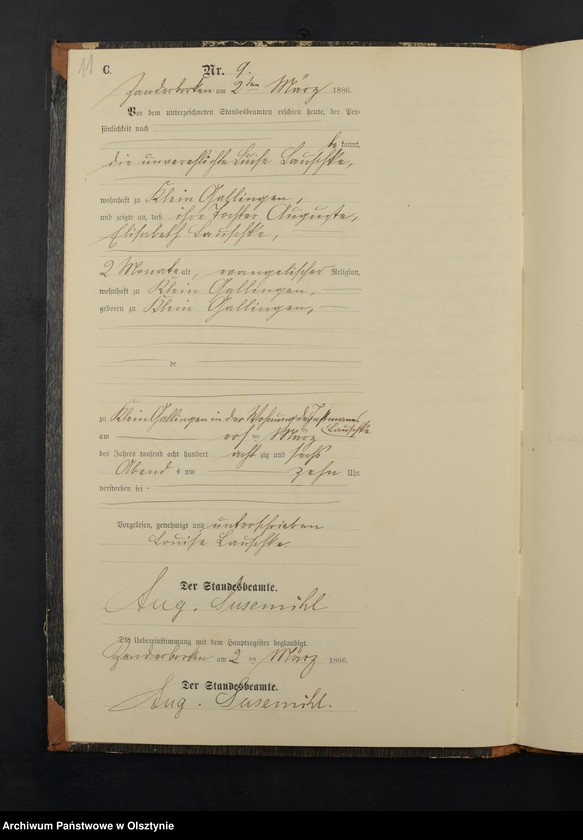 11
C.
Nr. 9.
Zanderborken am 2ten März 1886.
Vor dem unterzeichneten Standesbeamten erschien heute, der Per-
sönlichkeit nach
be kannt,
die unverehlichte Luise Lauschke,
wohnhaft zu Klein Gallingen,
und zeigte an, daß ihre Tochter Auguste,
Elisabeth Lauschke,
2 Monate alt, evangelischer Religion,
wohnhaft zu Klein Gallingen,
geboren zu Klein Gallingen,
de
zu Klein Gallingen in der Wohnung des Instmanns
Lauschke
am ersten März
des Jahres tausend acht hundert acht zig und sechs
Abend s um zehn Uhr
verstorben sei
Vorgelesen, genehmigt und unterschrieben
Louise Lauschke.
Der Standesbeamte.
Aug. Susemihl
Die Uebereinstimmung mit dem Hauptregister beglaubigt.
Zanderborken am 2 ten März 1886.
Der Standesbeamte.
Aug. Susemihl.
Archiwum Państwowe w Olsztynie